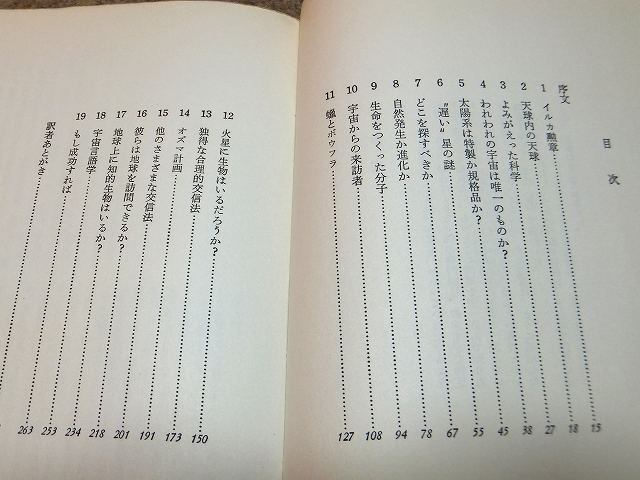 目次
序文
1 イルカ勲章 15
2 天球内の天球 18
3 よみがえった科学 27
4 われわれの宇宙は唯一のものか? 38
5 太陽系は特製か規格品か? 45
6 〝遅い〟星の謎 55
7 どこを探すべきか 67
8 自然発生か進化か 78
9 生命をつくった分子 94
10 宇宙からの来訪者 108
11 とボウフラ 127
12 火星に生物はいるだろうか? 150
13 独得な合理的交信法 173
14 オズマ計画 191
15 他のさまざまな交信法 201
16 彼らは地球を訪問できるか? 218
17 地球上に知的生物はいるか? 234
18 宇宙言語学 253
19 もし成功すれば 263
訳者あとがき